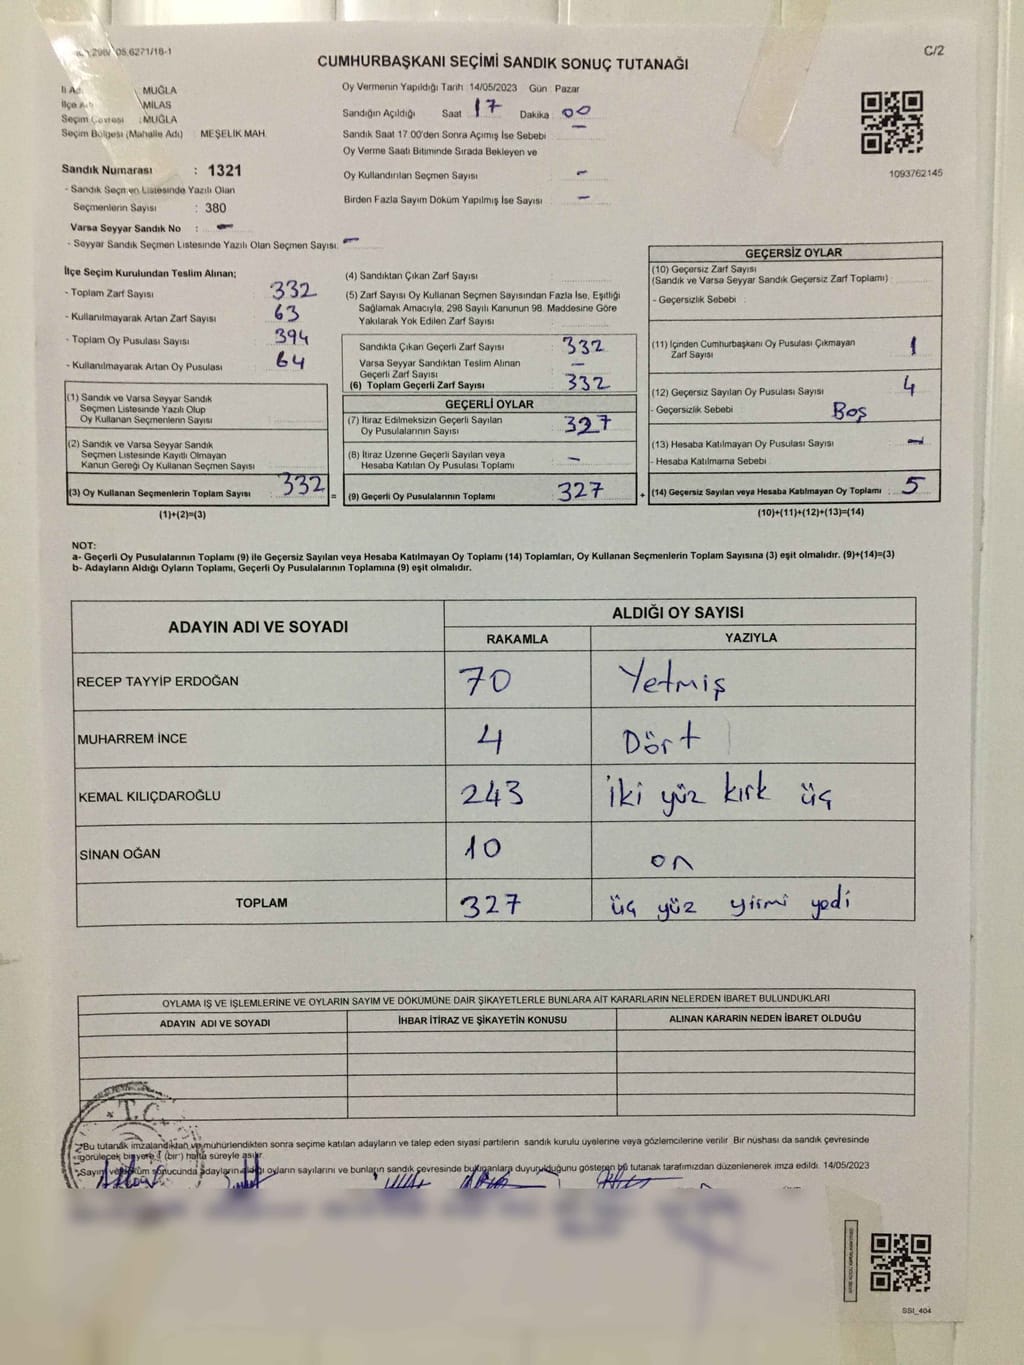 CUMHURBAŞKANI SEÇİMİ SANDIK SONUÇ TUTANAĞI
C/2
: MUĞLA
: MİLAS
Seçim Çevresi : MUĞLA
Seçim Bölgesi (Mahalle Adı) MEŞELİK MAH.
Sandık Numarası : 1321
- Sandık Seçmen Listesinde Yazılı Olan
Seçmenlerin Sayısı : 380
Varsa Seyyar Sandık No : -
- Seyyar Sandık Seçmen Listesinde Yazılı Olan Seçmen Sayısı: -
Oy Vermenin Yapıldığı Tarih: 14/05/2023 Gün Pazar
Sandığın Açıldığı Saat 17 Dakika 00
Sandık Saat 17:00'den Sonra Açılmış İse Sebebi -
Oy Verme Saati Bitiminde Sırada Bekleyen ve
Oy Kullandırılan Seçmen Sayısı -
Birden Fazla Sayım Döküm Yapılmış İse Sayısı -
1093762145
İlçe Seçim Kurulundan Teslim Alınan;
- Toplam Zarf Sayısı 332
- Kullanılmayarak Artan Zarf Sayısı 63
- Toplam Oy Pusulası Sayısı 394
- Kullanılmayarak Artan Oy Pusulası 64
(1) Sandık ve Varsa Seyyar Sandık
Seçmen Listesinde Yazılı Olup
Oy Kullanan Seçmenlerin Sayısı
(2) Sandık ve Varsa Seyyar Sandık
Seçmen Listesinde Kayıtlı Olmayan
Kanun Gereği Oy Kullanan Seçmen Sayısı
(3) Oy Kullanan Seçmenlerin Toplam Sayısı 332 =
(1)+(2)=(3)
(4) Sandıktan Çıkan Zarf Sayısı
(5) Zarf Sayısı Oy Kullanan Seçmen Sayısından Fazla İse, Eşitliği
Sağlamak Amacıyla, 298 Sayılı Kanunun 98. Maddesine Göre
Yakılarak Yok Edilen Zarf Sayısı
Sandıkta Çıkan Geçerli Zarf Sayısı 332
Varsa Seyyar Sandıktan Teslim Alınan
Geçerli Zarf Sayısı -
(6) Toplam Geçerli Zarf Sayısı 332
GEÇERLİ OYLAR
(7) İtiraz Edilmeksizin Geçerli Sayılan
Oy Pusulalarının Sayısı 327
(8) İtiraz Üzerine Geçerli Sayılan veya
Hesaba Katılan Oy Pusulası Toplamı -
(9) Geçerli Oy Pusulalarının Toplamı 327 +
GEÇERSİZ OYLAR
(10) Geçersiz Zarf Sayısı
(Sandık ve Varsa Seyyar Sandık Geçersiz Zarf Toplamı) :
- Geçersizlik Sebebi :
(11) İçinden Cumhurbaşkanı Oy Pusulası Çıkmayan
Zarf Sayısı 1
(12) Geçersiz Sayılan Oy Pusulası Sayısı 4
- Geçersizlik Sebebi Boş
(13) Hesaba Katılmayan Oy Pusulası Sayısı -
- Hesaba Katılmama Sebebi :
(14) Geçersiz Sayılan veya Hesaba Katılmayan Oy Toplamı : 5
(10)+(11)+(12)+(13)=(14)
NOT:
a- Geçerli Oy Pusulalarının Toplamı (9) ile Geçersiz Sayılan veya Hesaba Katılmayan Oy Toplamı (14) Toplamları, Oy Kullanan Seçmenlerin Toplam Sayısına (3) eşit olmalıdır. (9)+(14)=(3)
b- Adayların Aldığı Oyların Toplamı, Geçerli Oy Pusulalarının Toplamına (9) eşit olmalıdır.
ADAYIN ADI VE SOYADI
ALDIĞI OY SAYISI
RAKAMLA YAZIYLA
RECEP TAYYİP ERDOĞAN 70 Yetmiş
MUHARREM İNCE 4 Dört
KEMAL KILIÇDAROĞLU 243 iki yüz kırk üç
SİNAN OĞAN 10 on
TOPLAM 327 üç yüz yirmi yedi
OYLAMA İŞ VE İŞLEMLERİNE VE OYLARIN SAYIM VE DÖKÜMÜNE DAİR ŞİKAYETLERLE BUNLARA AİT KARARLARIN NELERDEN İBARET BULUNDUKLARI
ADAYIN ADI VE SOYADI İHBAR İTİRAZ VE ŞİKAYETİN KONUSU ALINAN KARARIN NEDEN İBARET OLDUĞU
T.C.
*Bu tutanak imzalandıktan ve mühürlendikten sonra seçime katılan adayların ve talep eden siyasi partilerin sandık kurulu üyelerine veya gözlemcilerine verilir. Bir nüshası da sandık çevresinde
görülecek bir yere 1 (bir) hafta süreyle asılır.
*Sayım ve döküm sonucunda adayların aldığı oyların sayılarını ve bunların sandık çevresinde bulunanlara duyurulduğunu gösteren bu tutanak tarafımızdan düzenlenerek imza edildi. 14/05/2023
SSI_404